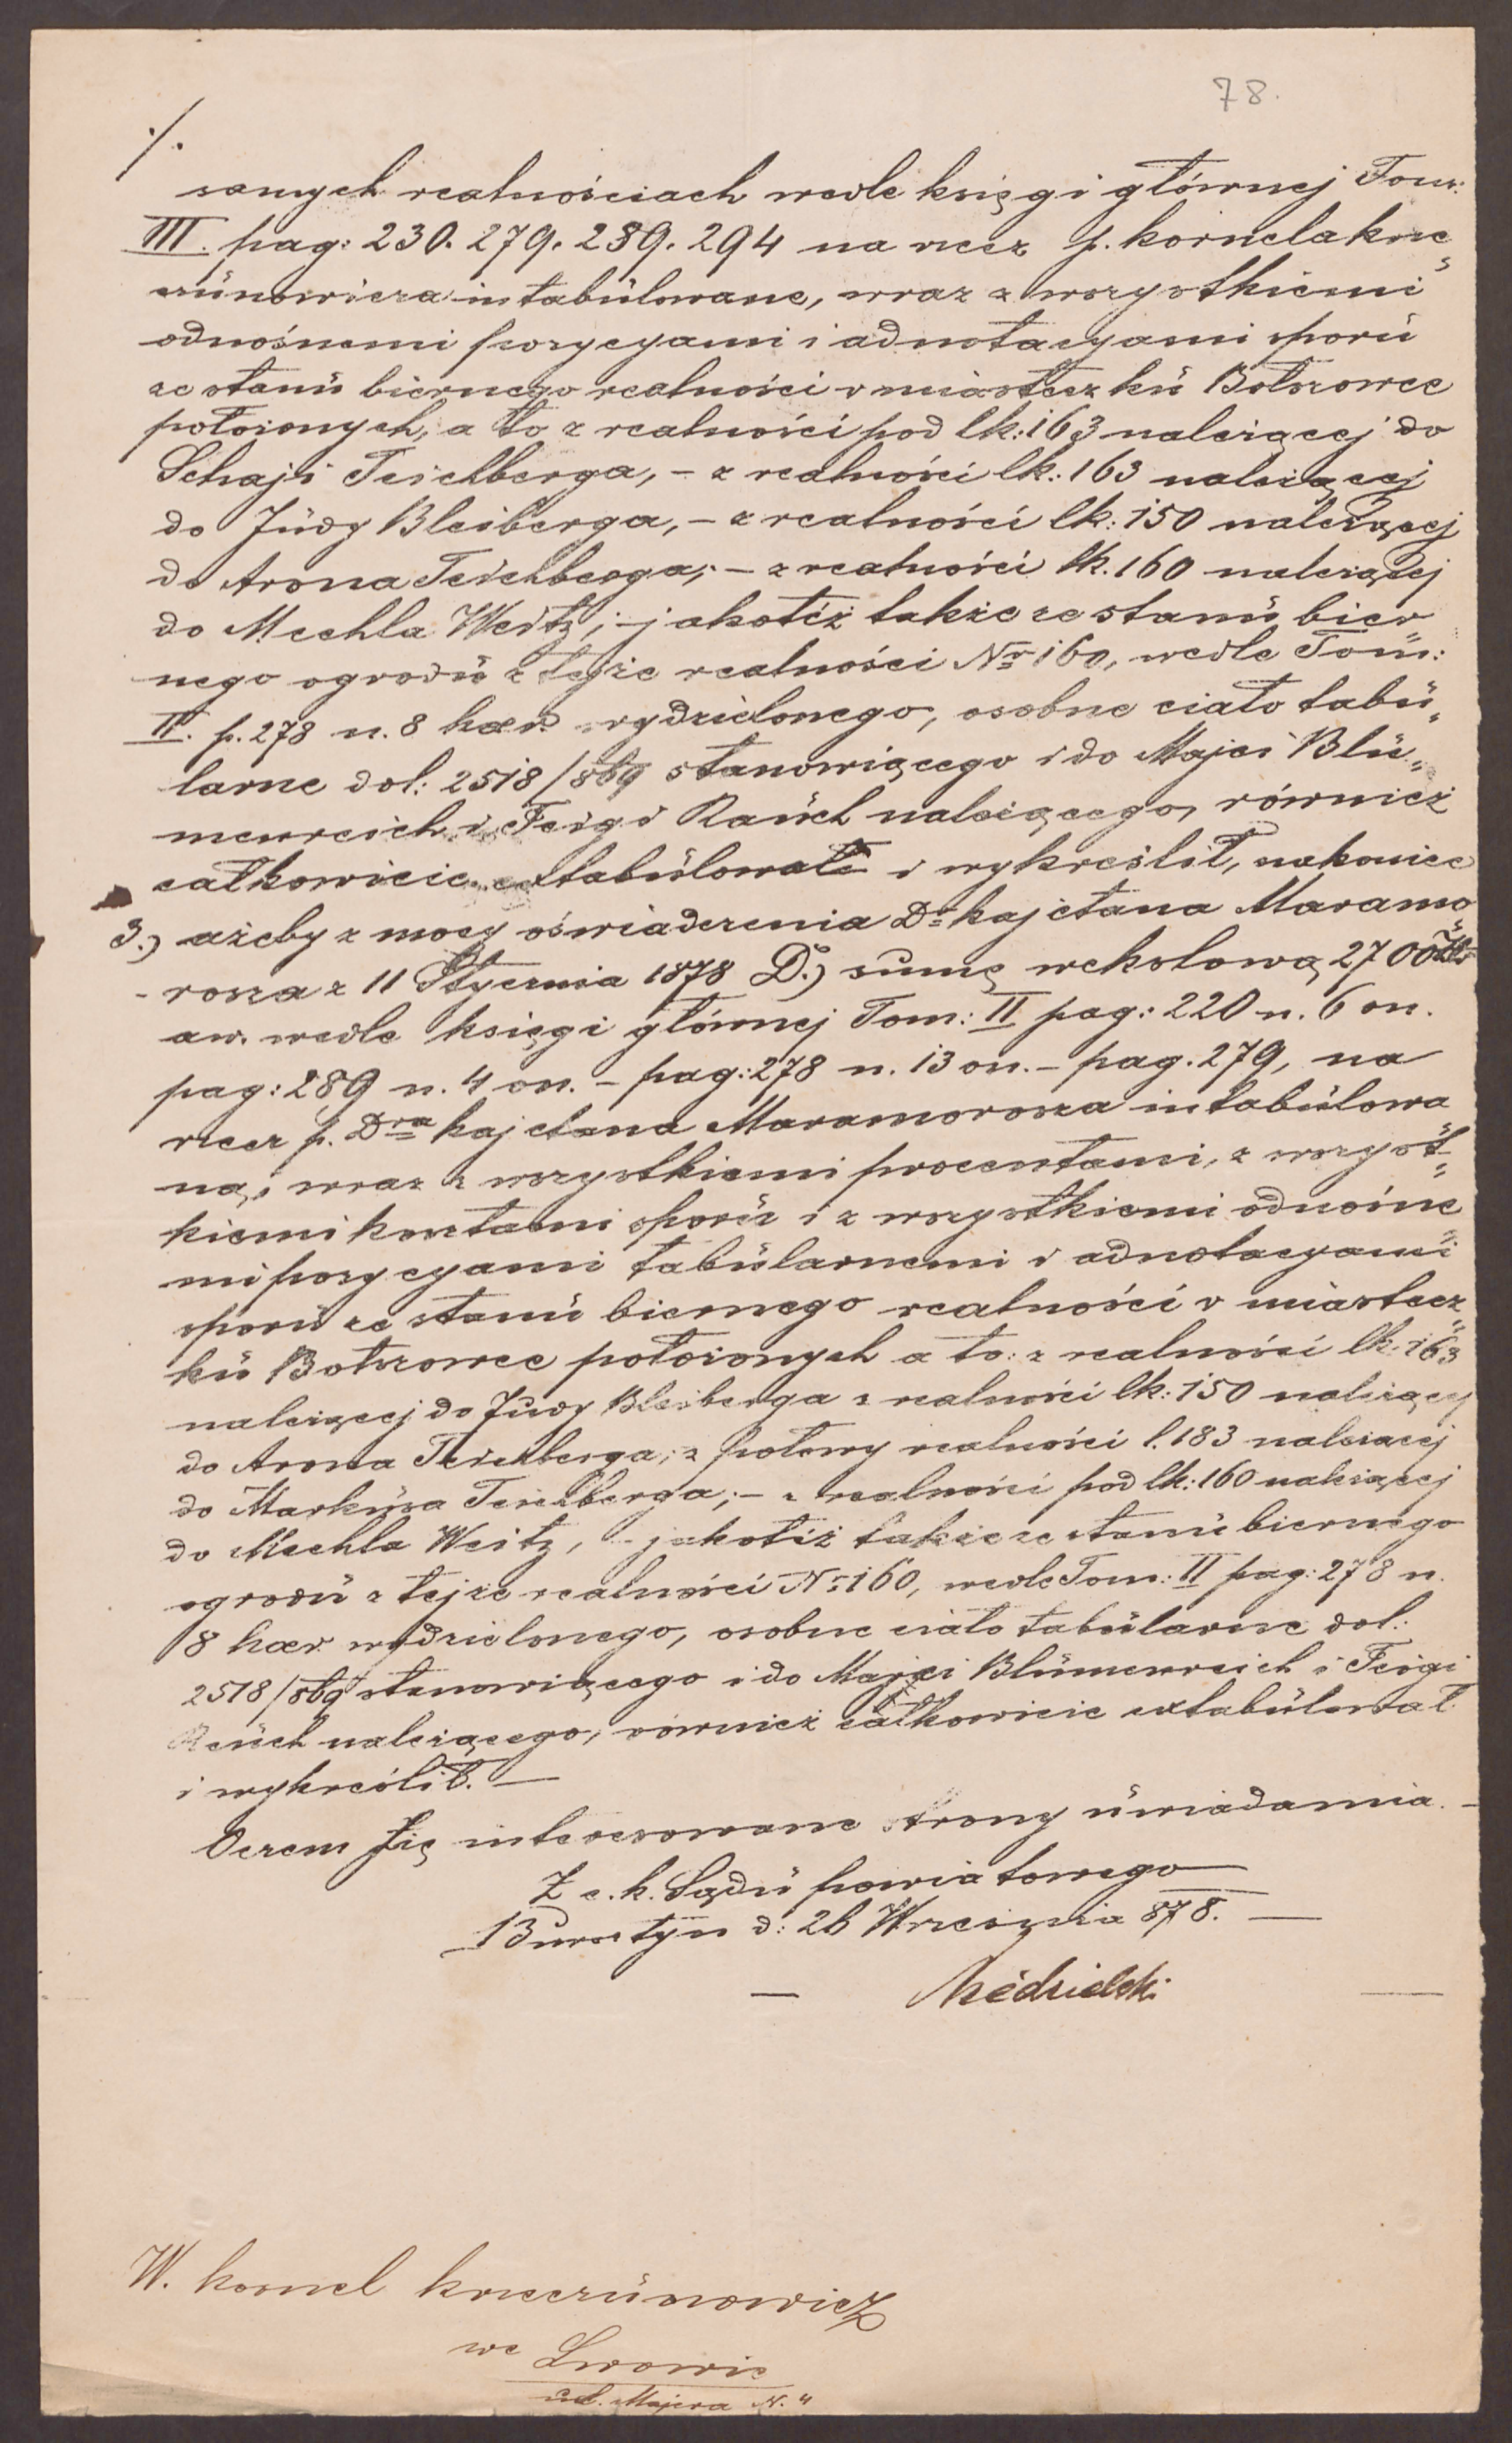 78.
./.
samych realnościach wedle księgi głównej Tom:
III. pag: 230. 279. 289. 294 na rzecz p. Kornela Krze„
czünowicza intabülowane, wraz z wszystkiemi
odnośnemi pozycyami i adnotacyami sporü
ze stanü biernego realności w miasteczkü Bołszowce
położonych, a to z realności pod lk: 163 należącej do
Schaji Teichberga, – z realności lk: 163 należącej
do Jüdy Bleiberga, – z realności lk: 150 należącej
do Arona Teichberga; – z realności lk. 160 należącej
do Mechla Weitz; – jakotéż także ze stanü bier„
nego ogrodü z tejże realności Nr 160, wedle Tom:
II. p. 278 n. 8 haer. wydzielonego, osobne ciało tabü„
larne dol: 2518/869 stanowiącego i do Majci Blü„
menreich i Feigi Raüch należącego, również
całkowicie extabülował i wykreślił, nakoniec
3.) ażeby z mocy oświadczenia Dr Kajetana Maramo„
rosza z 11 Stycznia 1878 D.) sumę wekslową 2700 Złr
aw. wedle księgi głównej Tom: II pag: 220 n. 6 on.
pag: 289 n. 4 on. – pag: 278 n. 13 on. – pag. 279, na
rzecz p. Dra Kajetana Maramorosza intabülowa„
ną, wraz z wszystkiemi procentami, z wszyst„
kiemi kosztami sporü i z wszystkiemi odnośne„
mi pozycyami tabülarnemi i adnotacyami
sporü ze stanü biernego realności w miastecz„
kü Bołszowce położonych a to: z realności lk. 163
należącej do Jüdy Bleiberga z realności lk: 150 należącej
do Arona Teichberga; z połowy realności l. 183 należącej
do Marküsa Teichberga; – z realności pod lk: 160 należącej
do Mechla Weitz, – jakotéż także ze stanü biernego
ogrodü z tejże realności Nr 160, wedle Tom: II pag: 278 n.
8 haer. wydzielonego, osobne ciało tabülarne dol:
2518/869 stanowiącego i do Majci Blümenreich i Feigi
Raüch należącego, również całkowicie extabülował
i wykreślił. —
O czem się interesowane strony üwiadamia. –
Z c. k. Sądü powiatowego
Bursztyn d: 26 Września 878. —
— Niedzielski —
W. Kornel Krzeczünowicz
we Lwowie
ul. Majera N. 4